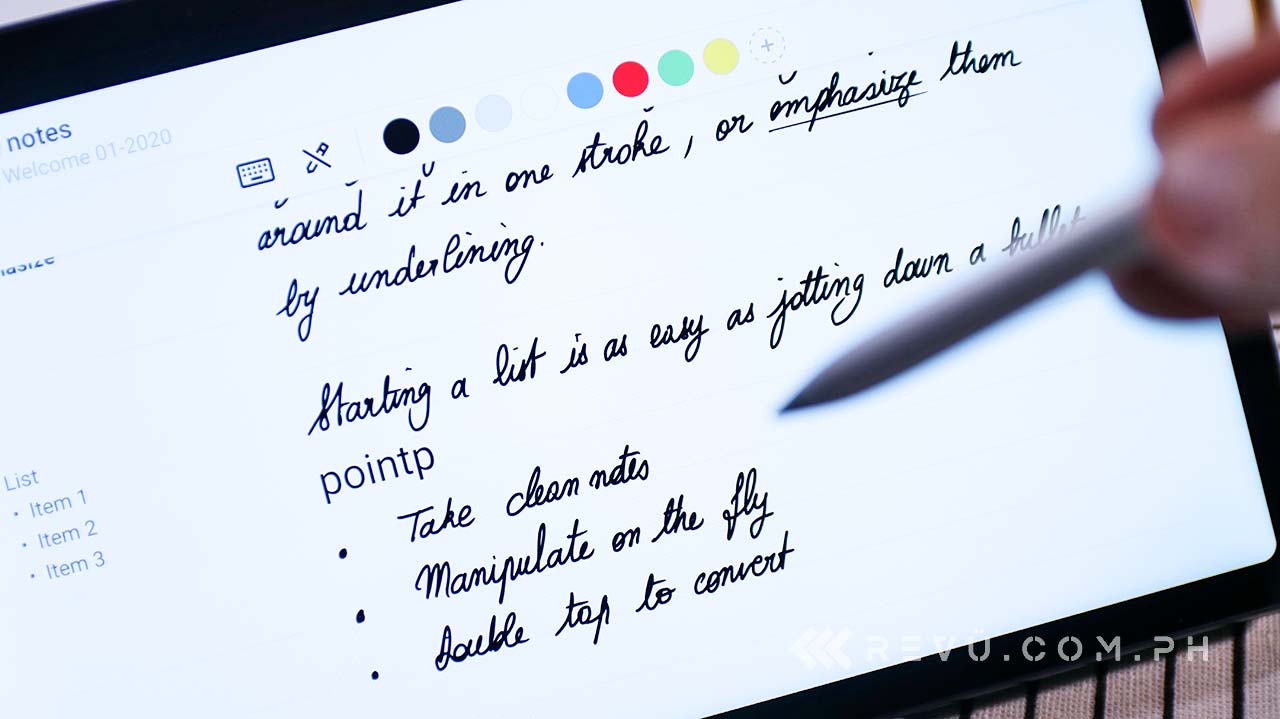 notes
Welcome 01-2020
around it in one stroke, or emphasize them
by underlining.
Starting a list is as easy as jotting down a bullet
pointp
• Take clean notes
• Manipulate on the fly
• Double tap to convert
List
• Item 1
• Item 2
• Item 3
REVÜ.COM.PH